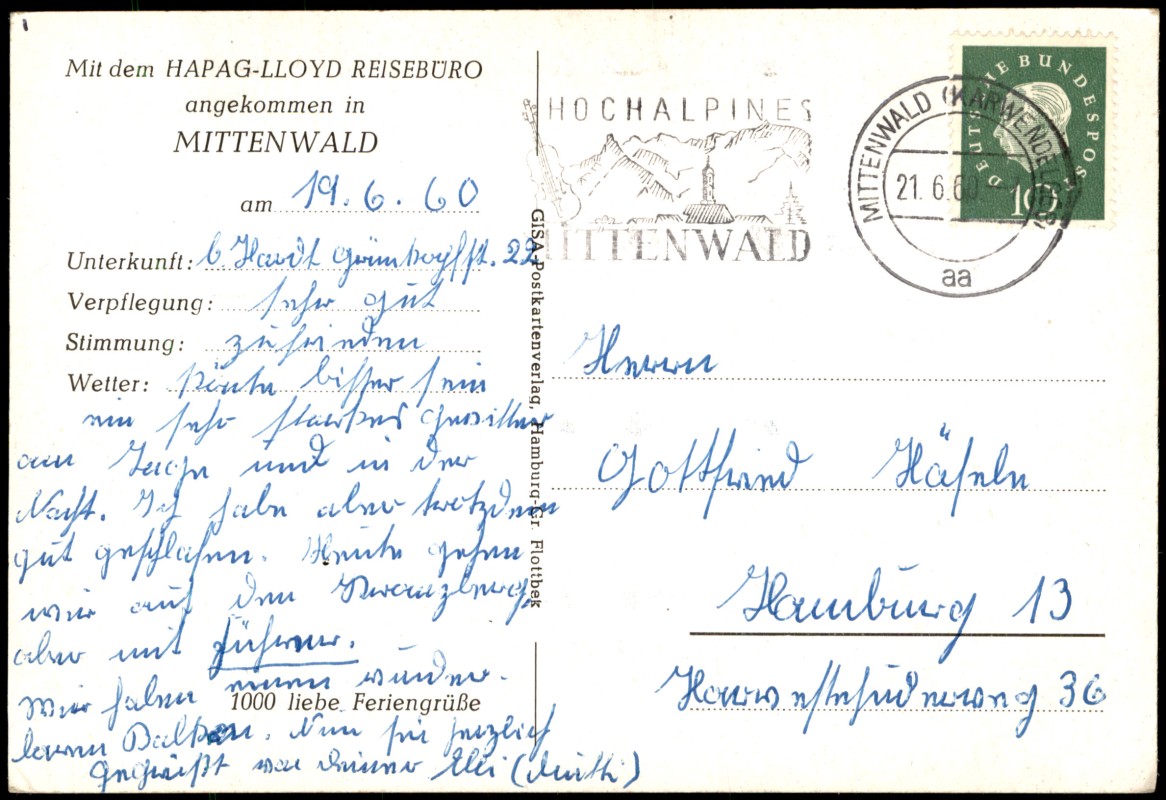 Mit dem HAPAG-LLOYD REISEBÜRO
angekommen in
MITTENWALD
am 19.6.60
Unterkunft: b. Hardt 22
Verpflegung: sehr gut
Stimmung: zufrieden
Wetter: heute bisher fein
ein sehr starkes Gewitter
am Tage und in der
Nacht. Ich habe aber trotzdem
gut geschlafen. Heute gehen
wir auf den Kranzberg,
aber mit Führer.
Wir haben einen wunder-
1000 liebe Feriengrüße
baren Balkon. Nun sei herzlich
gegrüßt von Deiner Elli (Mutti)
GISA-Postkartenverlag, Hamburg-Gr. Flottbek
HOCHALPINES
MITTENWALD
MITTENWALD (KARWENDELGEB)
21.6.60
aa
DEUTSCHE BUNDESPOST
10
Herrn
Gottfried Häfele
Hamburg 13
Harvestehuderweg 36